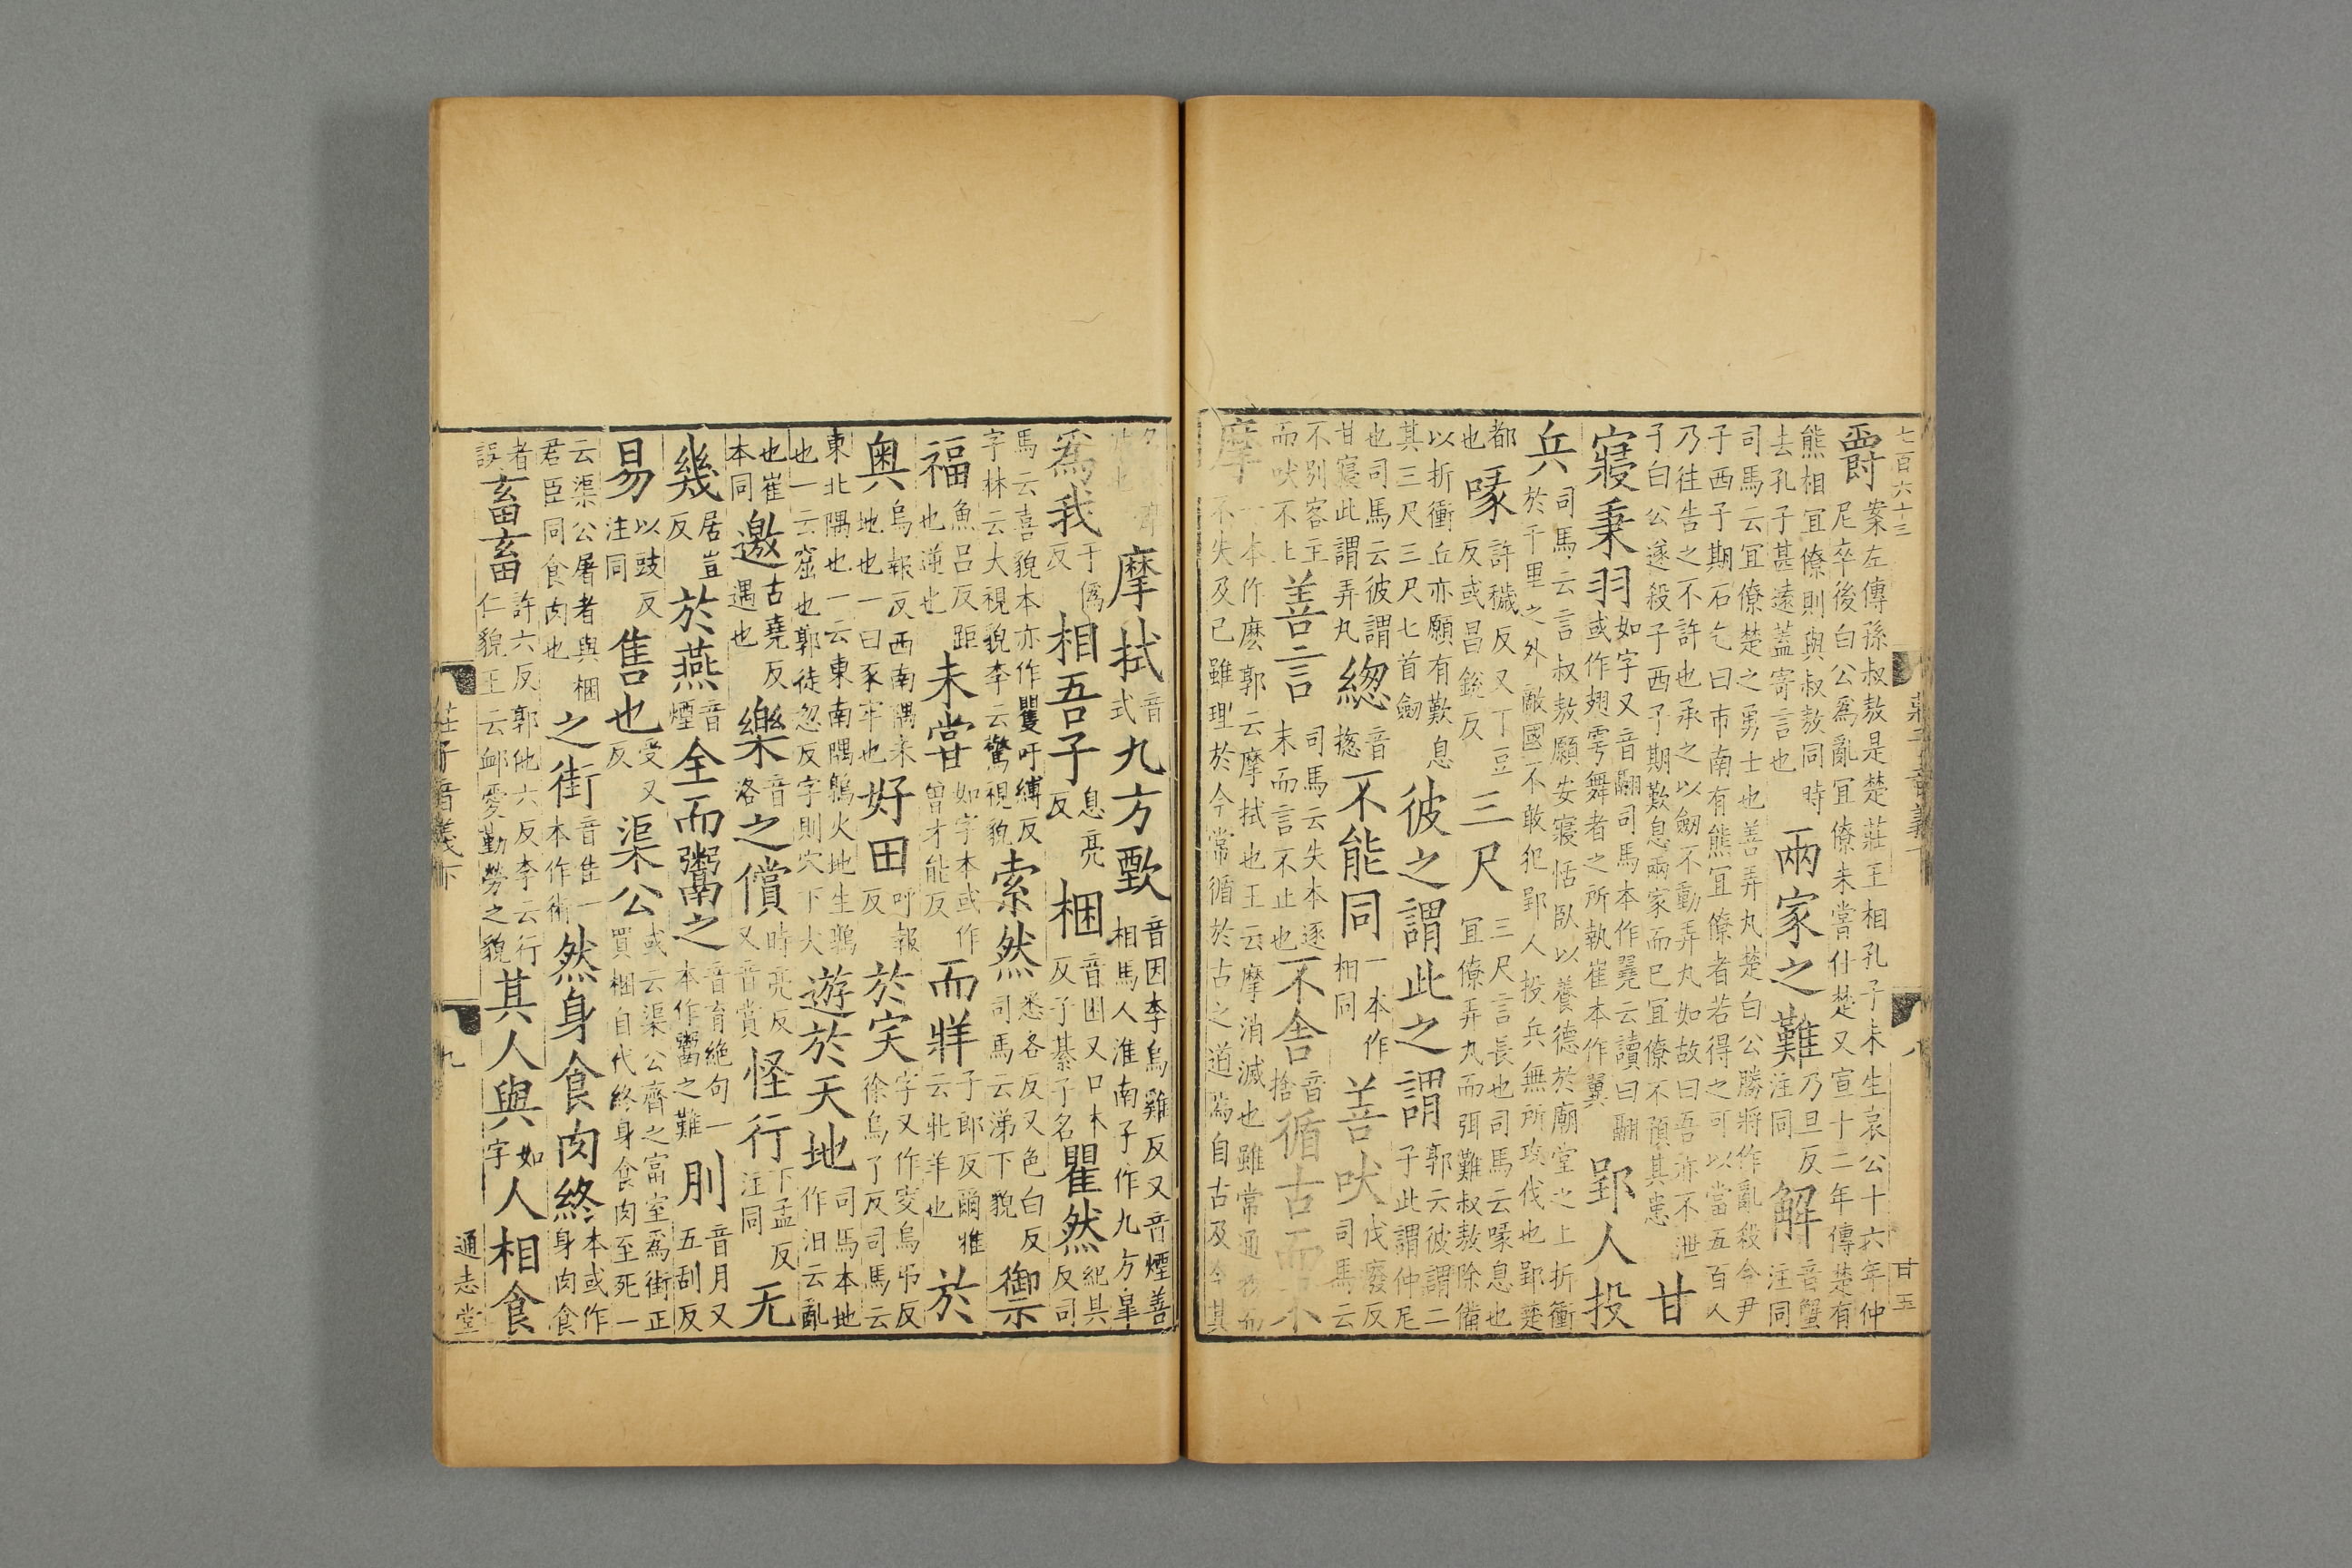 七百六十三
莊子音義下
八
甘五
爵案左傳孫叔敖是楚莊王相孔子未生哀公十六年仲尼卒後白公爲亂宜僚未嘗仕楚又宣十二年傳楚有
熊相宜僚則與叔敖同時去孔子甚遠蓋寄言也兩家之難乃旦反注同解音蟹注同
司馬云宜僚楚之勇士也善弄丸楚白公勝將作亂殺令尹子西子期石乞曰市南有熊宜僚者若得之可以當五百人
乃往告之不許也承之以劒不動弄丸如故曰吾亦不泄子白公遂殺子西子期歎息兩家而已宜僚不預其患甘
寢秉羽如字又音翮司馬本作翼云讀曰翮或作翅雩舞者之所執崔本作翼郢人投
兵司馬云言叔敖願安寢恬臥以養德於廟堂之上折衝於千里之外敵國不敢犯郢人投兵無所攻伐也郢楚
都也喙許穢反又丁豆反或昌銳反三尺三尺言長也司馬云喙息也宜僚弄丸而弭難叔敖除備
以折衝丘亦願有歎息其三尺三尺七首劒彼之謂此之謂郭云彼謂二子此謂仲尼
也司馬云彼謂甘寢此謂弄丸緫音揔不能同一本作相同善吠伐廢反司馬云
不別客主而吠不止善言司馬云失本逐末而言不止也不舍音捨循古而不
摩一本作麽郭云摩拭也王云摩消滅也雖常通物而不失及己雖理於今常循於古之道焉自古及今其
摩拭音式九方歅音因李烏雞反又音煙善相馬人淮南子作九方皐
爲我于僞反相吾子息亮反梱音困又口本反子綦子名瞿然紀具反司
馬云喜貌本亦作矍吁縛反字林云大視貌李云驚視貌索然悉各反又色白反司馬云涕下貌禦
福魚呂反距也逆也未嘗如字本或作曾才能反而牂子郎反爾雅云牝羊也於
奥烏報反西南隅未地也一曰豕牢也好田呼報反於宎字又作突烏弔反徐烏了反司馬云
東北隅也一云東南隅鶉火地生鶉也一云窟也郭徒忽反字則穴下犬遊於天地司馬本地作汨云亂
也崔本同邀古堯反遇也樂音洛之償時亮反又音賞怪行下孟反注同无
幾居豈反於燕音煙全而鬻之音育絶句一本作鬻之難刖音月又五刮反
易以豉反注同售也受又反渠公或云渠公齊之富室爲街正買梱自代終身食肉至死一
云渠公屠者與梱君臣同食肉也之街音隹一本作術然身食肉終本或作身肉食
者誤畜畜許六反郭他六反李云行仁貌王云䘏愛勤勞之貌其人與如字人相食
莊子音義下
九
通志堂